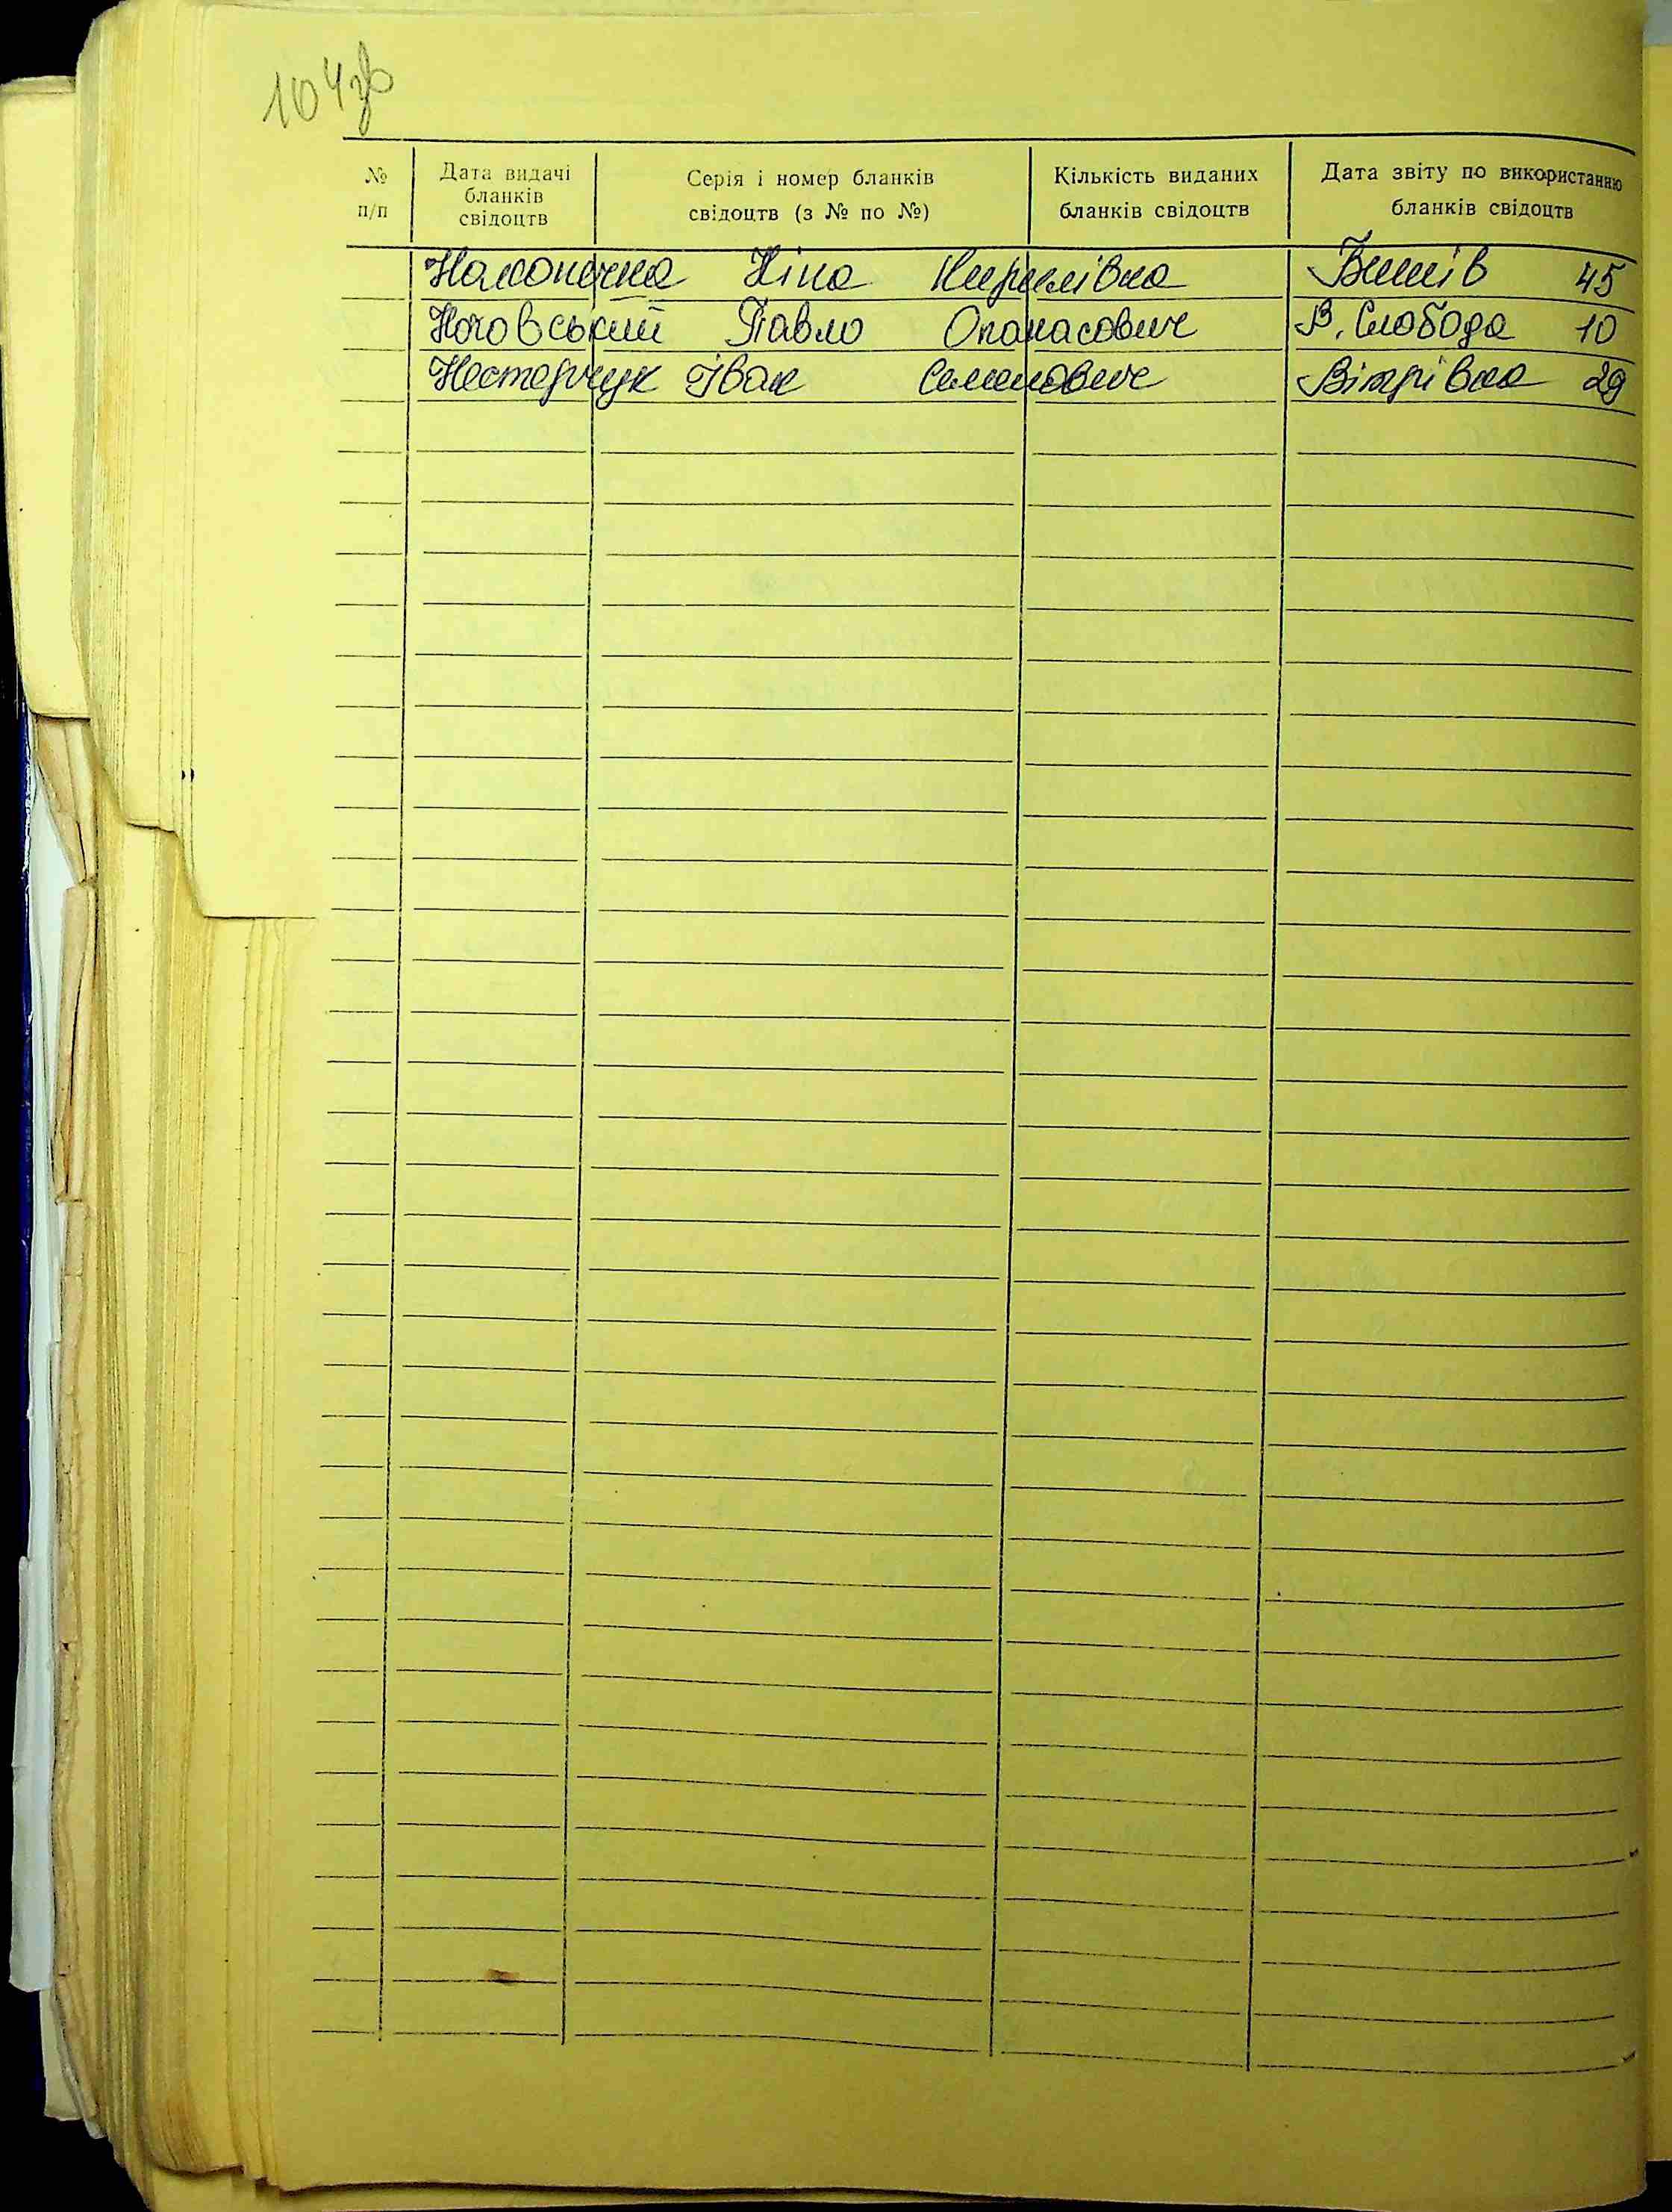 104зв
№ п/п Дата видачі бланків свідоцтв Серія і номер бланків свідоцтв (з № по №) Кількість виданих бланків свідоцтв Дата звіту по використанню бланків свідоцтв
Ніна Кирилівна 45
Павло Опанасович В. Слобода 10
Нестерчук Іван Семенович Вітрівка 29